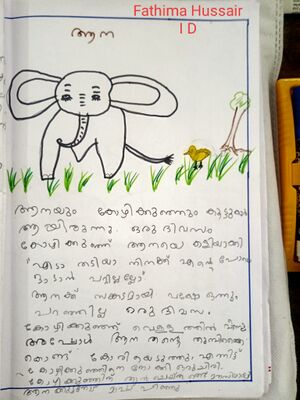 Fathima Hussair
I D
ആന
ആനയും കോഴിക്കുഞ്ഞും കൂട്ടുകാ
ആയിരുന്നു. ഒരു ദിവസം
കോഴിക്കുഞ്ഞ് ആനയെ കളിയാക്കി
"എടാ തടിയാ നിനക്ക് എന്റെ പോലെ
ചാടാൻ പറ്റില്ലല്ലോ"
ആനക്ക് സങ്കടമായി പക്ഷേ ഒന്നും
പറഞ്ഞില്ല ഒരു ദിവസം
കോഴിക്കുഞ്ഞ് വെള്ളത്തിൽ വീണു
അപ്പോൾ ആന തന്റെ തുമ്പിക്കൈ
കൊണ്ട് കോരിയെടുത്തു. എന്നിട്ട്
കോഴിക്കുഞ്ഞിനെ നോക്കി ചിരിച്ചു.
കോഴിക്കുഞ്ഞിന് താൻ ചെയ്ത തെറ്റ് മനസ്സിലായി
ആനയോട് മാപ്പ് പറഞ്ഞു